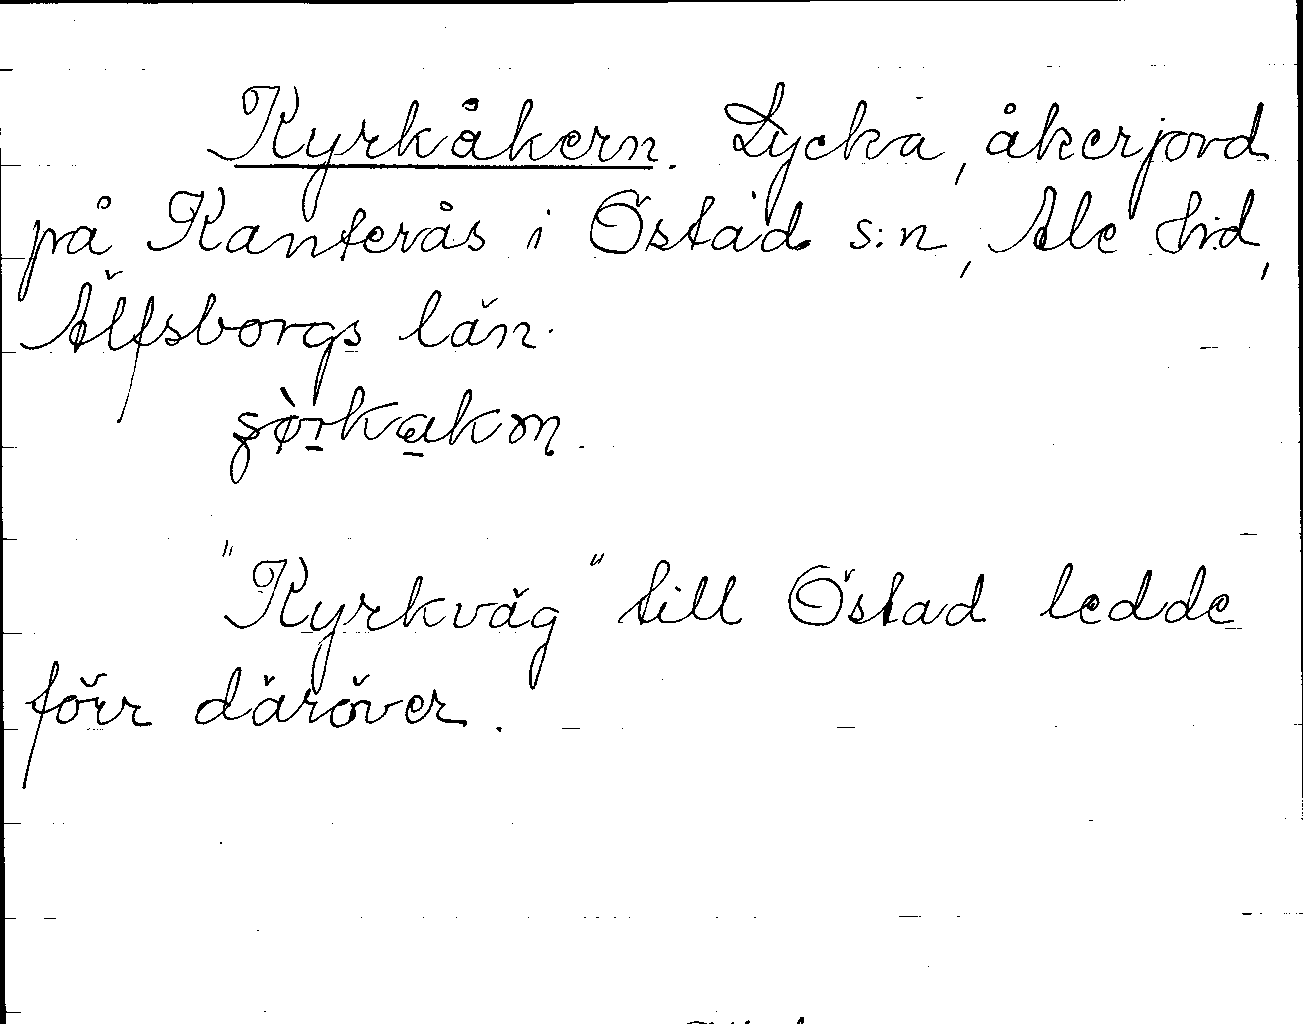 Kyrkåkern. Lycka, åkerjord
på Kanterås i Östad s:n, Ale hd,
Älfsborgs län.
"Kyrkväg" till Östad ledde
förr däröver.